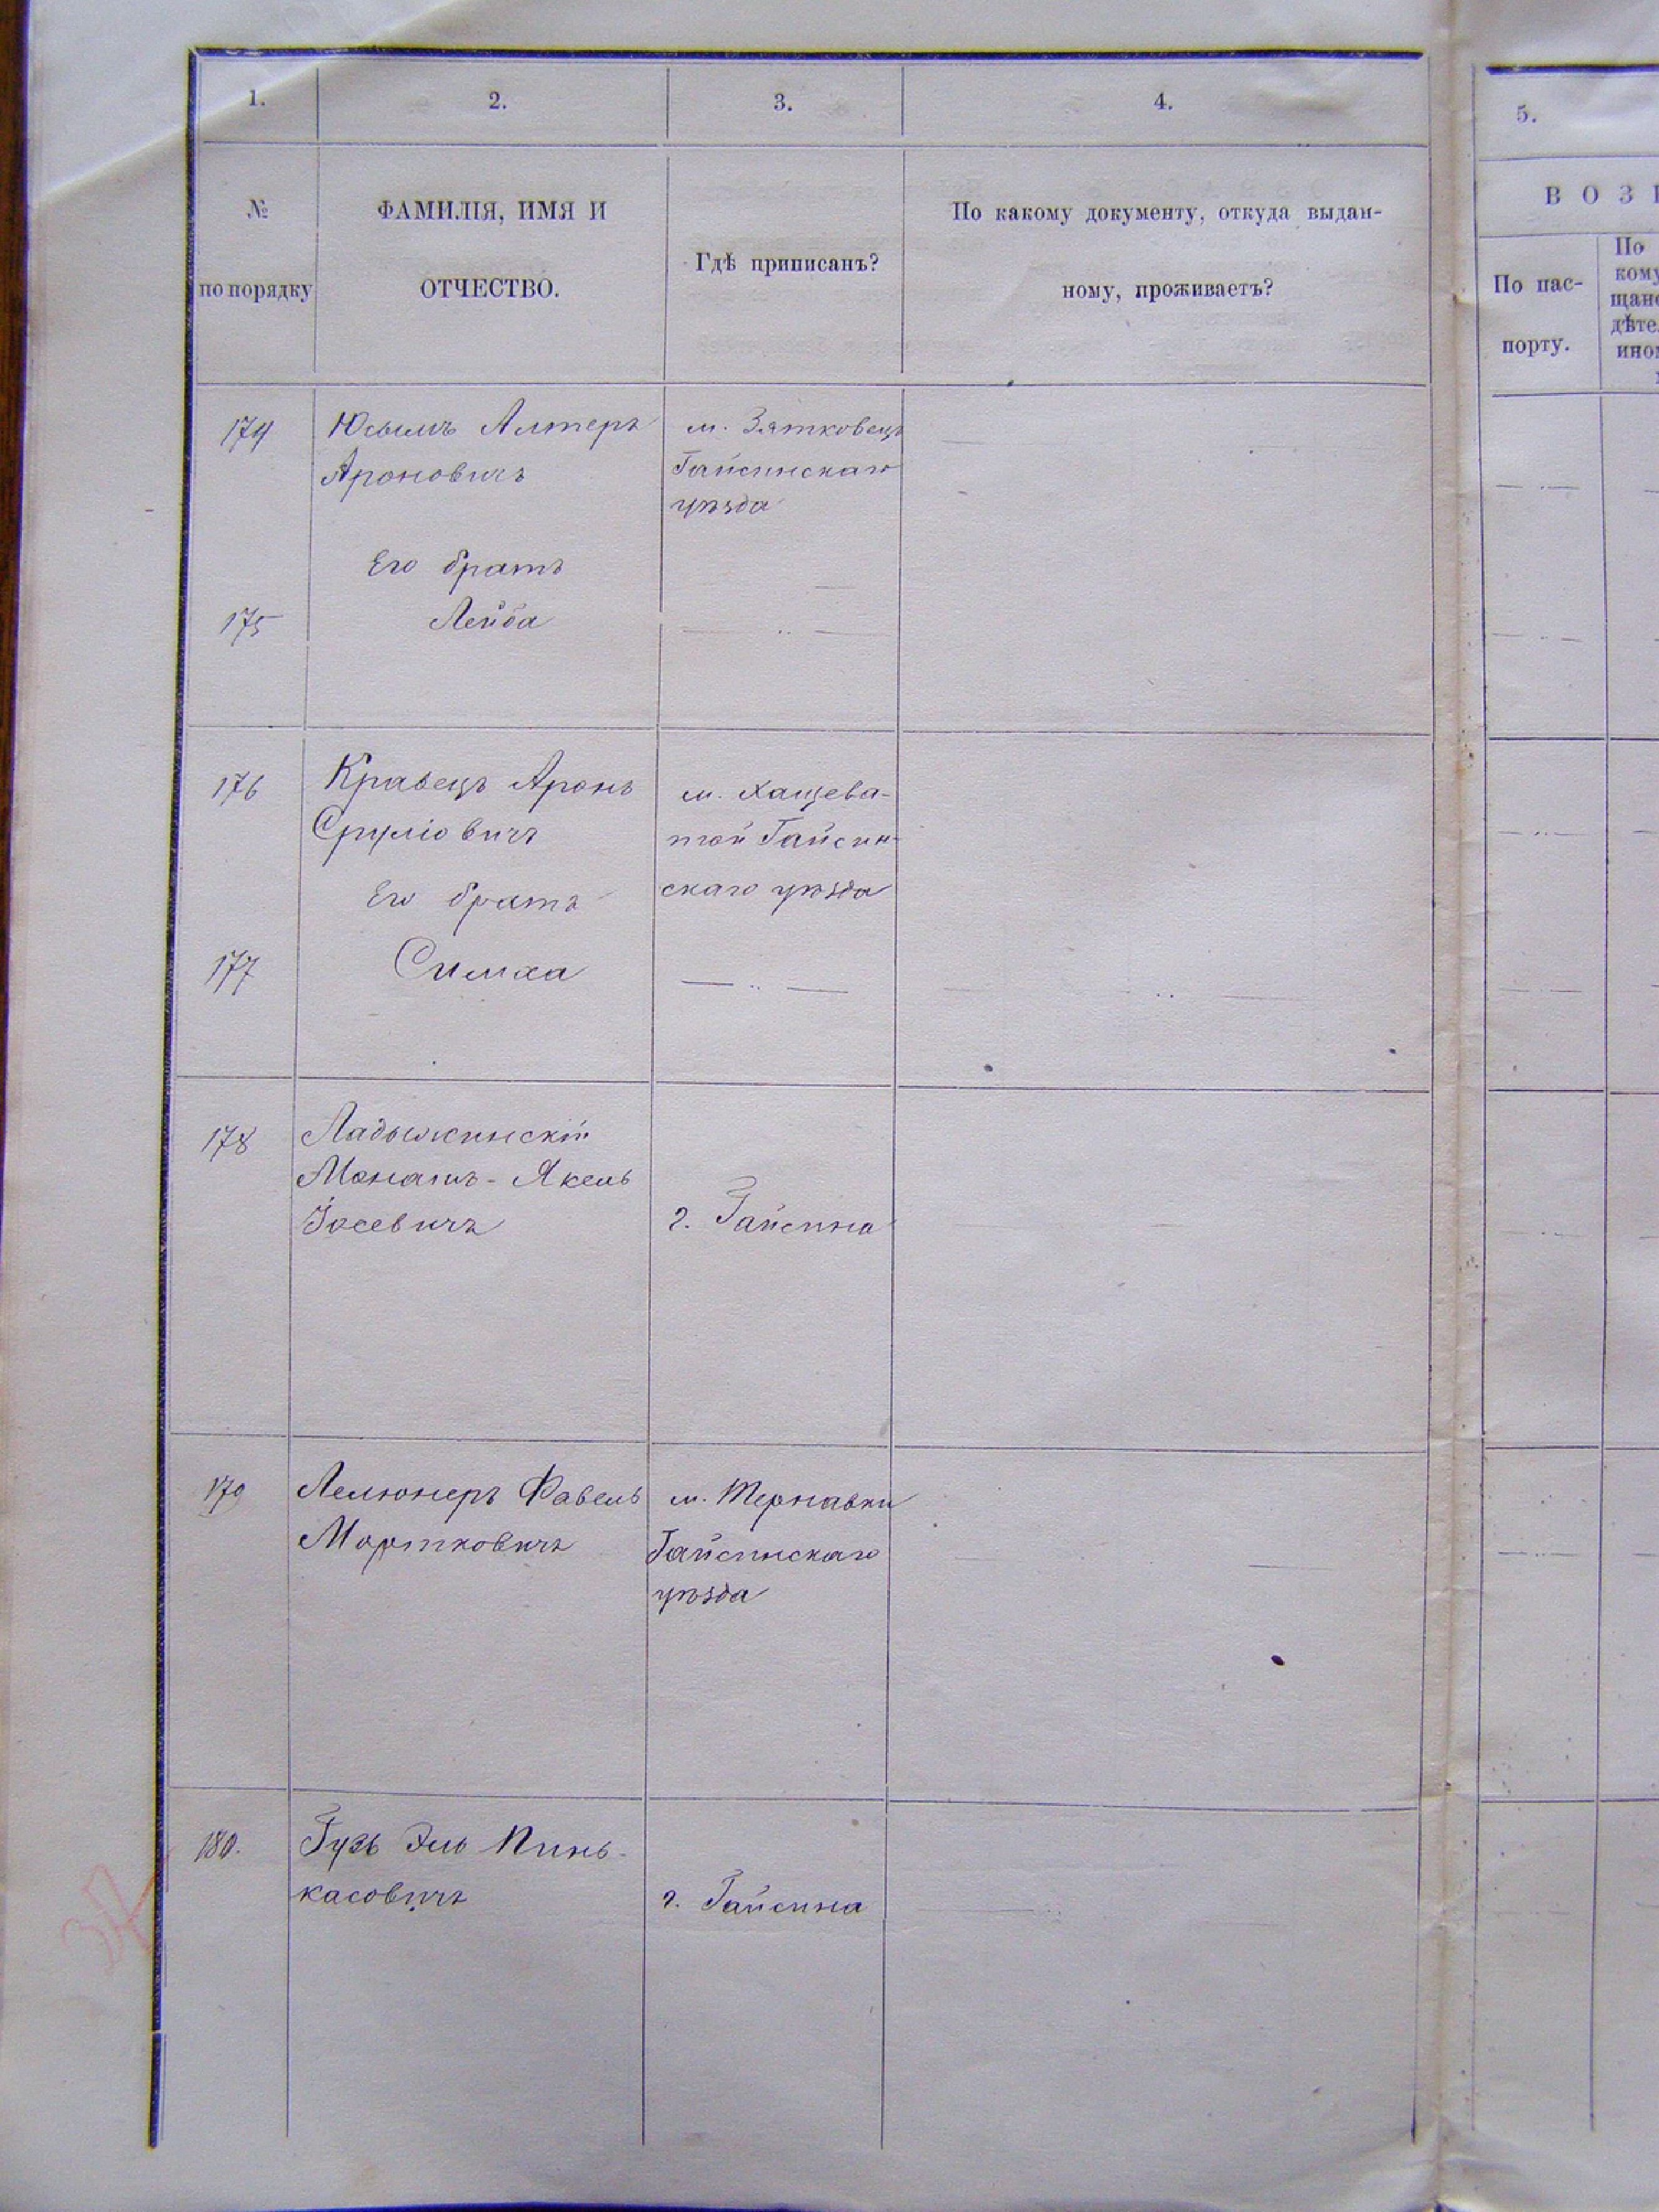 1.
2.
3.
4.
5.
№
по порядку
ФАМИЛІЯ, ИМЯ И
ОТЧЕСТВО.
Гдѣ приписанъ?
По какому документу, откуда выдан-
ному, проживаетъ?
По пас-
порту.
174
Алтеръ
Ароновичъ
м. Зятковецъ
Гайсинскаго
уѣзда
Его братъ
175
Лейба
176
Кравецъ Аронъ
Сруліовичъ
м. Хащева-
той Гайсин-
скаго уѣзда
Его братъ
177
Симха
178
Ладыжинскій
Монашъ-Якель
Іосевичъ
г. Гайсина
179
Фавель
Мортковичъ
м. Терновки
Гайсинскаго
уѣзда
180.
Гузь Эль Пинь-
касовичъ
г. Гайсина